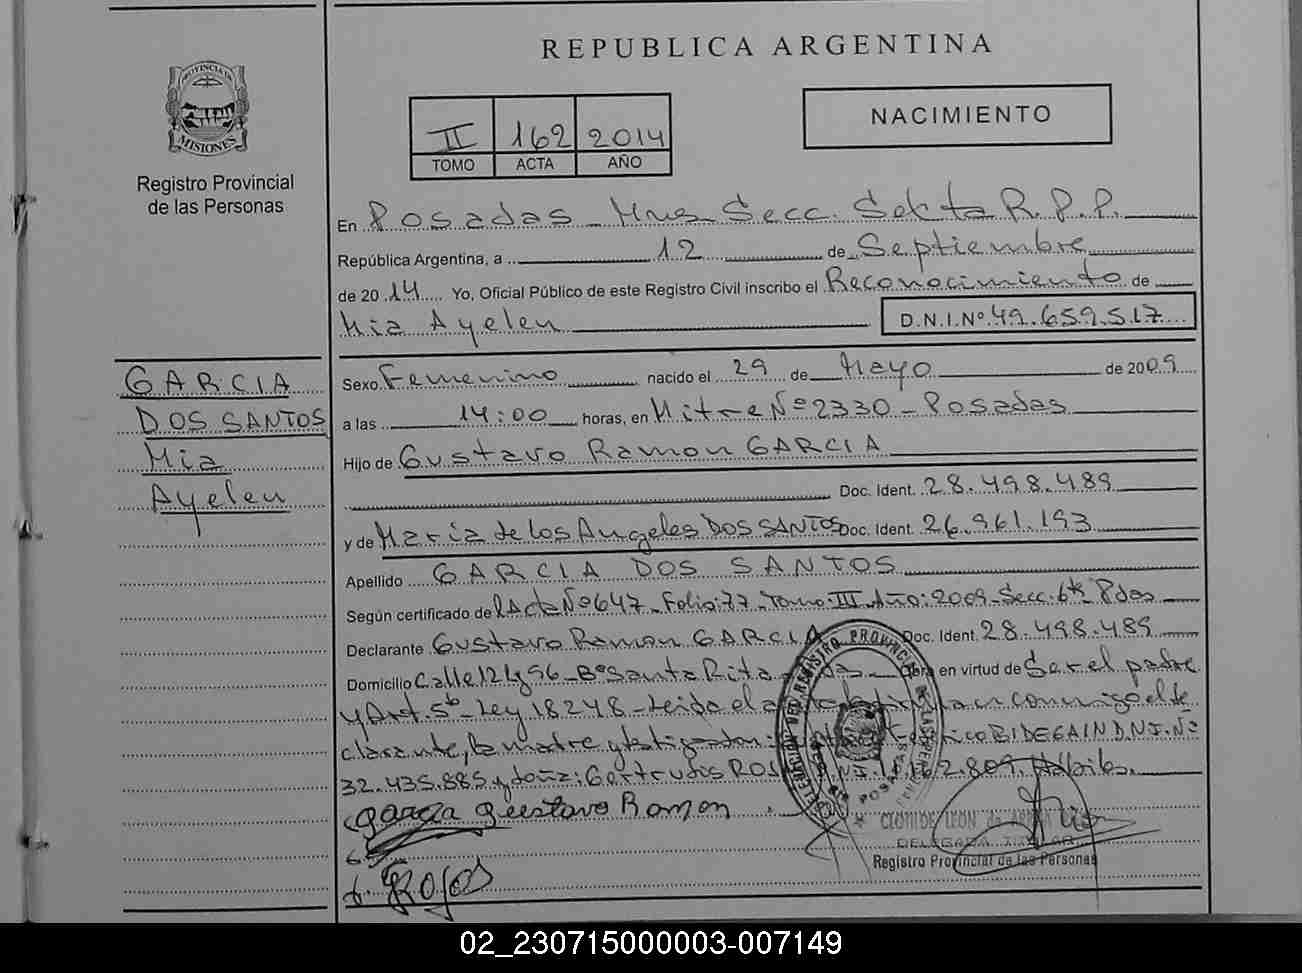 REPUBLICA ARGENTINA
PROVINCIA DE
MISIONES
Registro Provincial
de las Personas
II 162 2014
TOMO ACTA AÑO
NACIMIENTO
En Posadas Mnes Secc. Sexta R.P.P.
República Argentina, a 12 de Septiembre
de 2014 Yo, Oficial Público de este Registro Civil inscribo el Reconocimiento de
Mia Ayelen D.N.I.Nº 49.659.517
GARCIA
DOS SANTOS
Mia
Ayelen
Sexo Femenino nacido el 29 de Mayo de 2009
a las 14:00 horas, en Mitre Nº 2330 - Posadas
Hijo de Gustavo Ramon GARCIA
Doc. Ident. 28.498.489
y de Maria de los Angeles DOS SANTOS Doc. Ident. 26.961.193
Apellido GARCIA DOS SANTOS
Según certificado de Acta Nº 647 - Folio: 77 - Tomo: III Año: 2009 - Secc. 6ta Pdas
Declarante Gustavo Ramon GARCIA Doc. Ident. 28.498.489
Domicilio Calle 124 Bº Santa Rita Obra en virtud de Ser el padre
y Art. 5º - Ley 18248 - Leida el acta la firman conmigo el de
clarante, la madre y testigos BIDEGAIN DNI. Nº
32.435.885 y doña: Gertrudis 809. Hábiles.
Garcia Gustavo Ramon
DELEGADA TITULAR
Registro Provincial de las Personas
Rojas
02_230715000003-007149